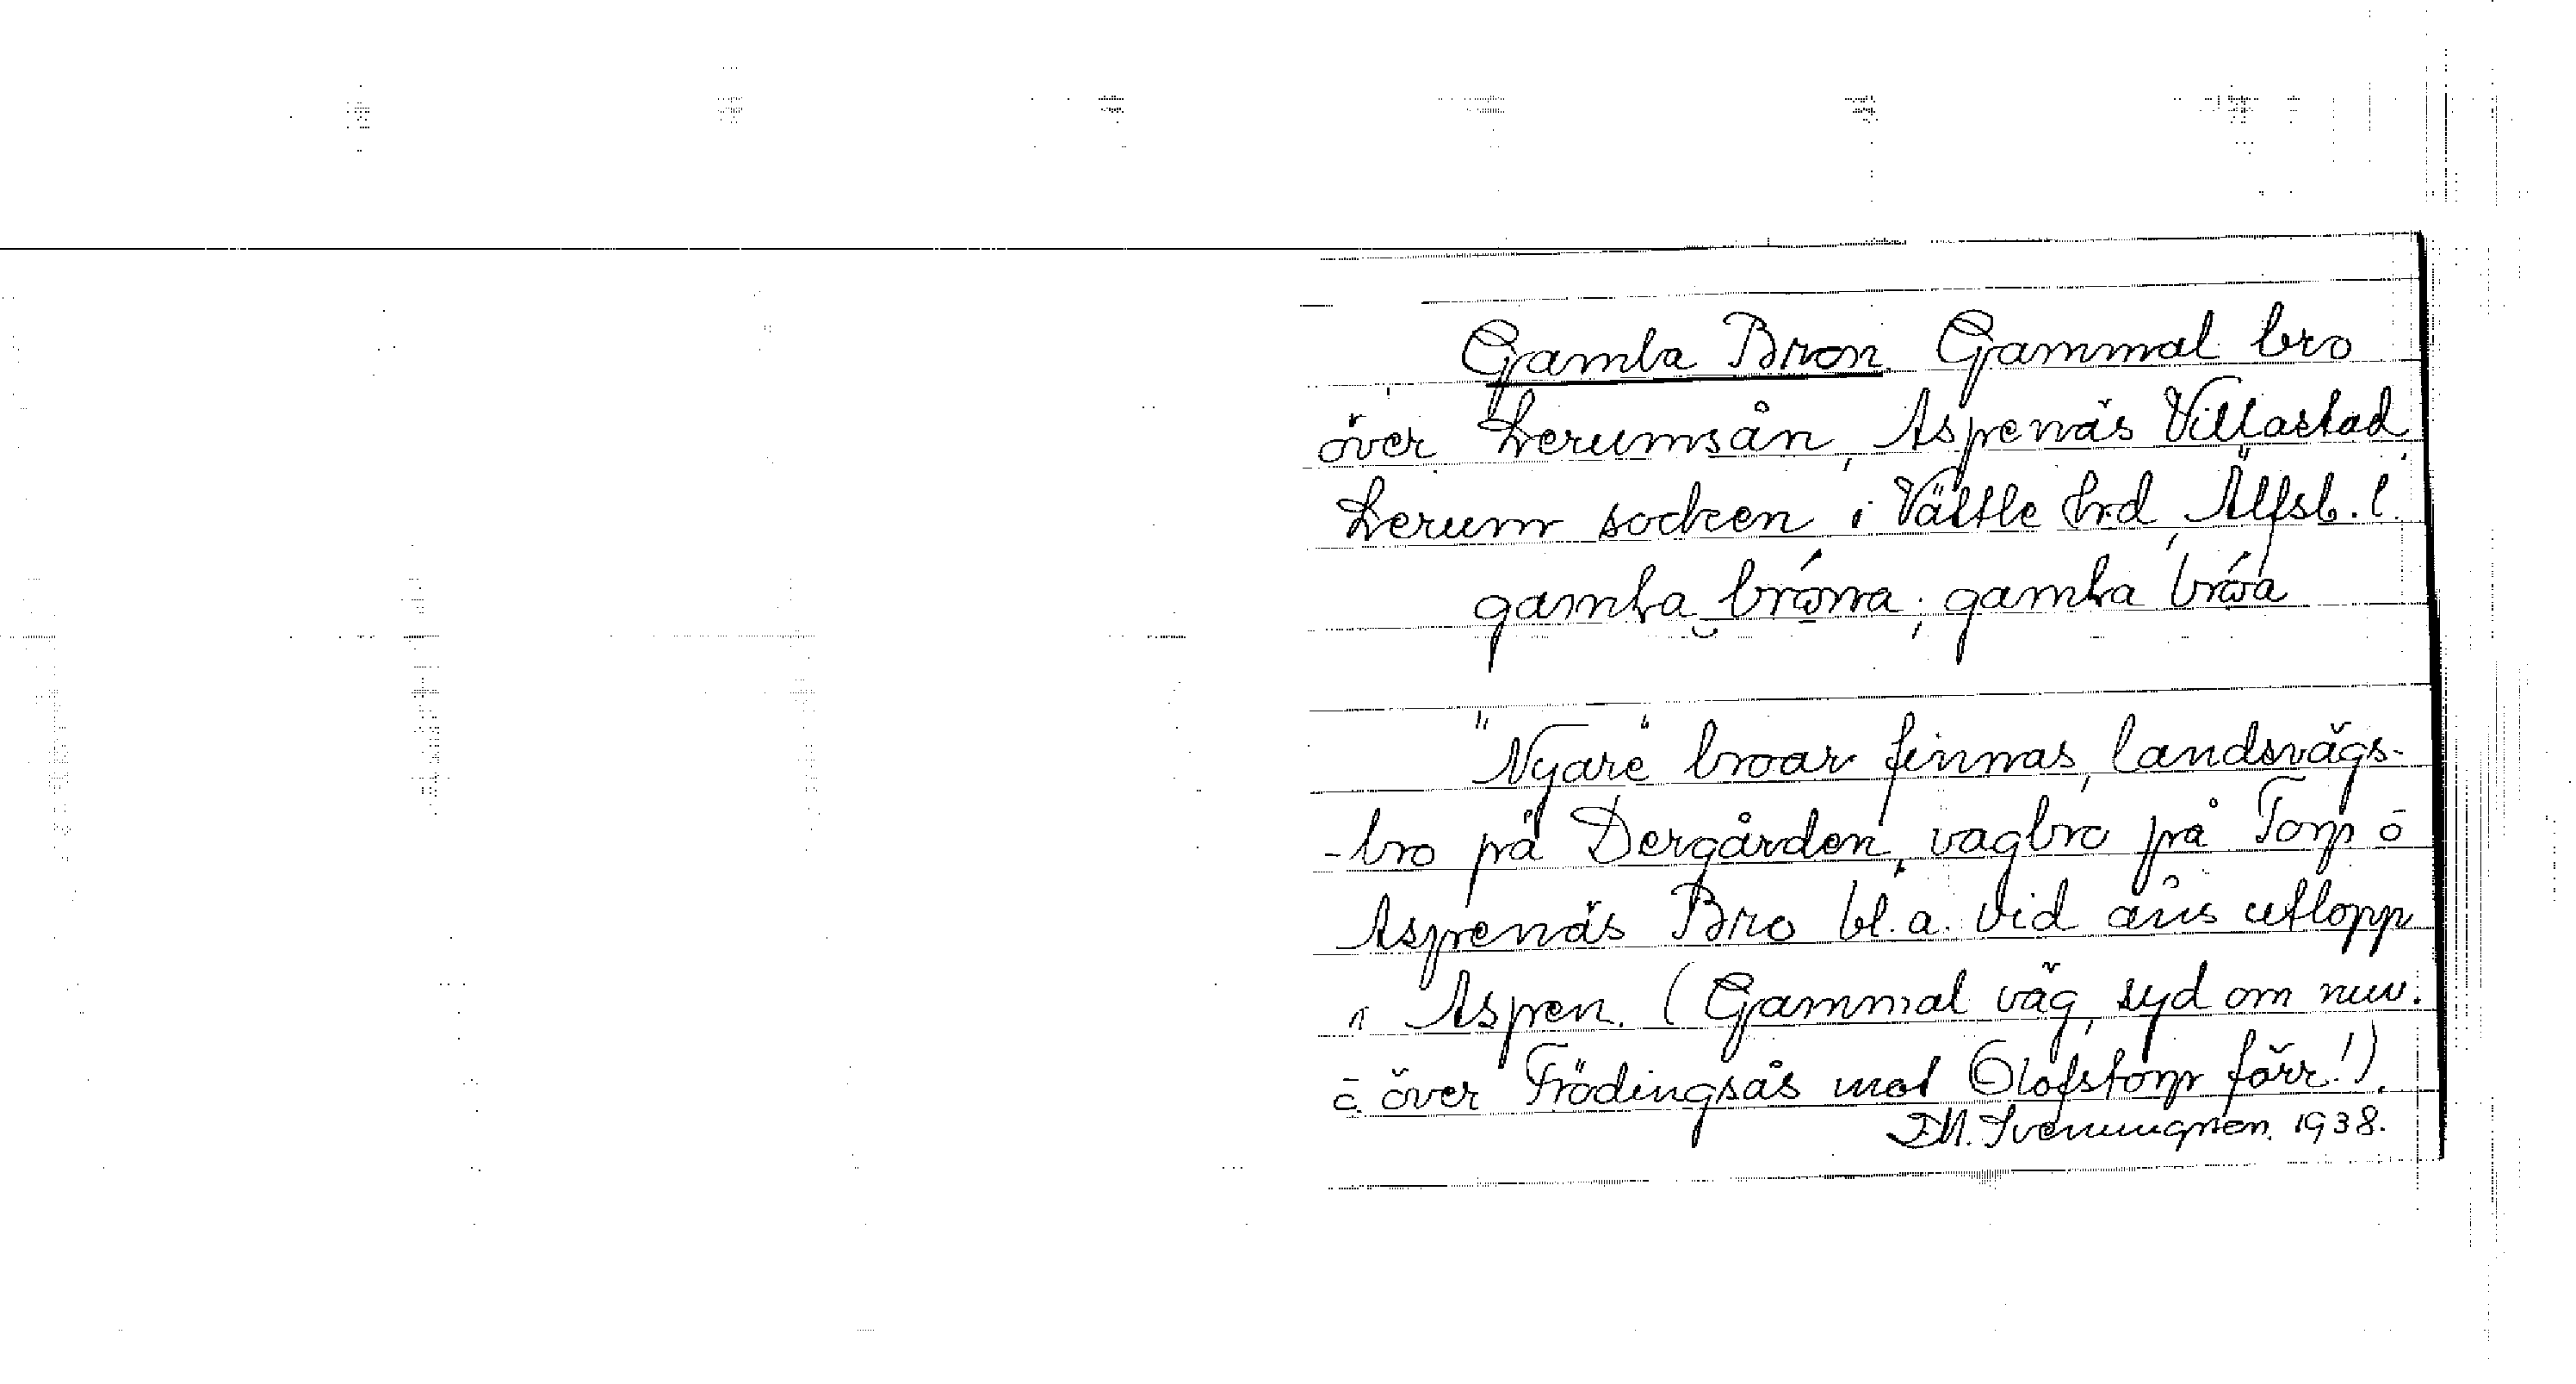 Gamla Bron. Gammal bro
över Lerumsån, Aspenäs Villastad,
Lerum socken i Vättle hrd, Älfsb. l.
gamla bróna; gamla bróa
"Nyare" broar finnas, landsvägs-
-bro på Dergården, vägbro på Torp ō
Aspenäs Bro bl.a. vid åns utlopp
i Aspen. (Gammal väg, syd om nuv.
ō över Frödingsås mot Olofstorp förr!).
F.M. Sveningsson. 1938.